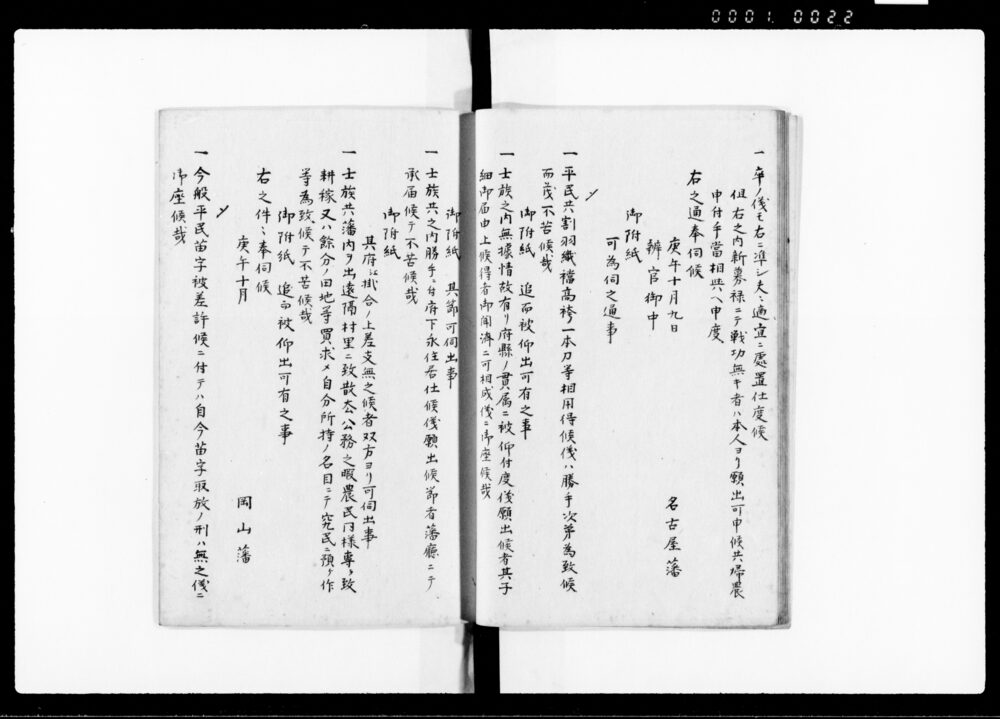 0001 0022
一 卒ノ儀モ右ニ準シ夫々適宜ニ處置仕度候
但右之内新募禄ニテ戦功無キ者ハ本人ヨリ願出可申候共帰農
申付手當相與ヘ申度
右之通奉伺候
庚午十月九日 名古屋藩
辨官御中
御附紙
可為伺之通事
一 平民共割羽織襠高袴一本刀等相用得候儀ハ勝手次第為致候
而茂不苦候哉
御附紙 追而被仰出可有之事
一 士族之内無據情故有リ府縣ノ貫属ニ被仰付度儀願出候者其子
細御届申上候得者御聞濟ニ可相成儀ニ御座候哉
御附紙 其節可伺出事
一 士族共之内勝手ニ付府下永住居仕候儀願出候節者藩廳ニテ
承届候テ不苦候哉
御附紙
其府江掛合ノ上差支無之候者双方ヨリ可伺出事
一 士族共藩内ヲ出遠隔村里ニ致散在公務之暇農民同様専ラ致
耕稼又ハ餘分ノ田地等買求メ自分所持ノ名目ニテ究民ニ預ケ作
等為致候テ不苦候哉
御附紙 追而被仰出可有之事
右之件々奉伺候
庚午十月 岡山藩
一 今般平民苗字被差許候ニ付テハ自今苗字取放ノ刑ハ無之儀ニ
御座候哉